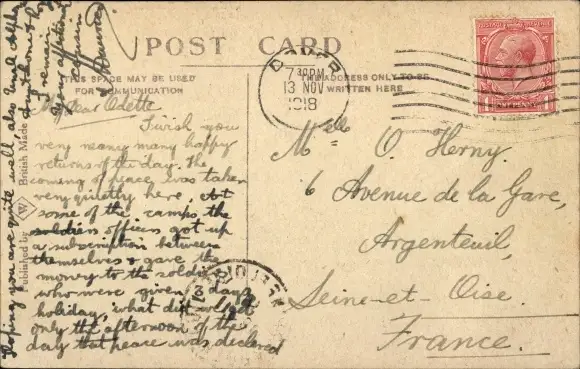 POST CARD
THIS SPACE MAY BE USED
FOR COMMUNICATION
THE ADDRESS ONLY TO BE
WRITTEN HERE
DOVER
7 30PM
13 NOV
1918
My Dear Odette
I wish you
very many many happy
returns of the day. The
coming of peace was taken
very quietly here At
some of the camps the
soldiers officers got up
a subscription between
themselves & gave the
money to the soldiers
who were given 3 days
holiday, what did we get
only the afternoon of the
day that peace was declared
Hoping you are quite well, also Uncle
I remain
Your affectionate
cousin
Maurice
Published by W British Made
Mlle O. Herny
6 Avenue de la Gare,
Argenteuil,
Seine-et-Oise.
France.